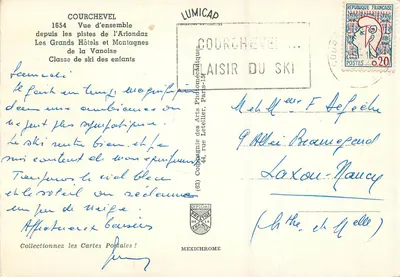 COURCHEVEL
1654 Vue d'ensemble
depuis les pistes de l'Ariondaz
Les Grands Hôtels et Montagnes
de la Vanoise
Classe de ski des enfants
LUMICAP
COURCHEVEL...
PLAISIR DU SKI
REPUBLIQUE FRANCAISE
POSTES 0,20
Samedi
Il fait un temps magnifique
dans une ambiance on
ne peut plus sympathique.
Le ski va très bien, et je
suis content de mon
Toujours le ciel bleu
et le soleil on réclame
un peu de neige.
Affectueux baisers
Collectionnez les Cartes Postales !
Compagnie des Arts Photomécaniques
44, rue Letellier, Paris-15e
MEXICHROME
M et Mme F
9 Allée Beauregard
Laxou-Nancy
(Mthe et Melle)